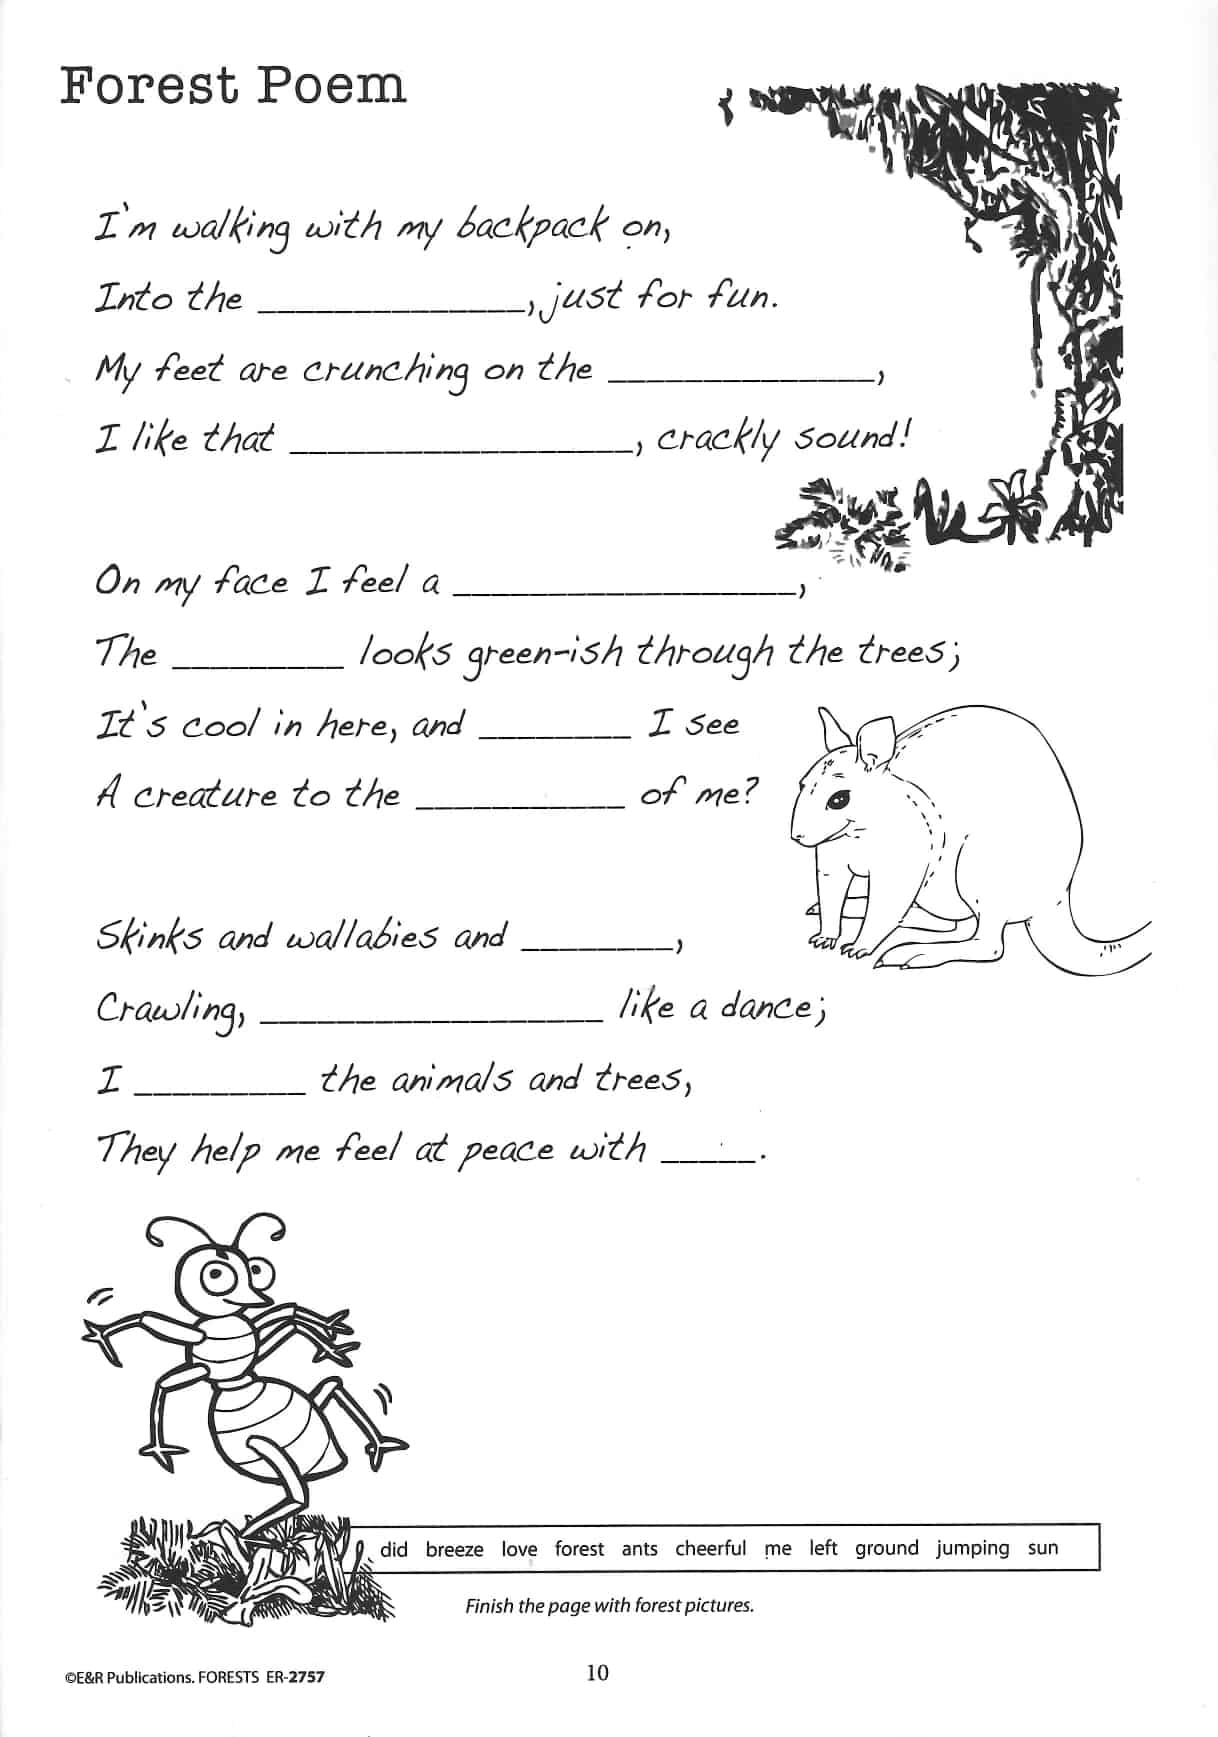 Forest Poem
I'm walking with my backpack on,
Into the ______________, just for fun.
My feet are crunching on the ______________,
I like that __________________, crackly sound!
On my face I feel a __________________,
The _________ looks green-ish through the trees;
It's cool in here, and ________ I see
A creature to the ___________ of me?
Skinks and wallabies and ________,
Crawling, __________________ like a dance;
I _________ the animals and trees,
They help me feel at peace with _____.
did breeze love forest ants cheerful me left ground jumping sun
Finish the page with forest pictures.
©E&R Publications. FORESTS ER-2757
10